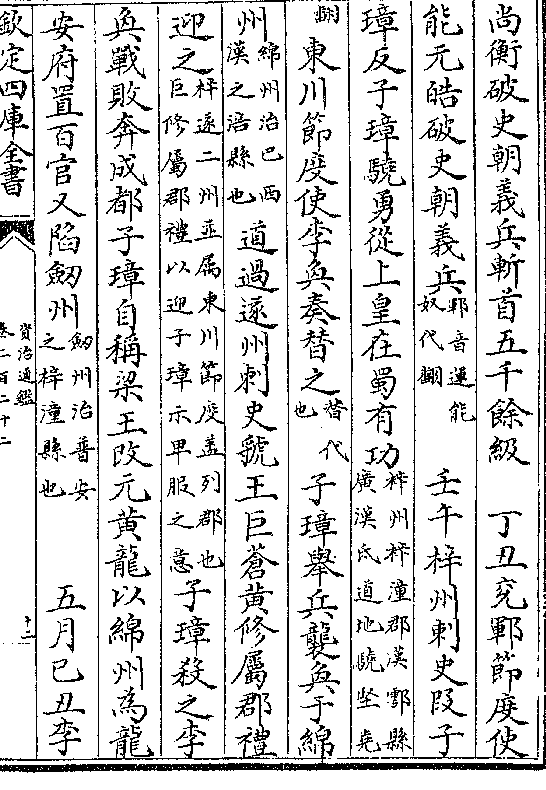 尚衡破史朝義兵斬首五千餘級　丁丑兖鄆節度使
能元皓破史朝義兵鄆音運能奴代翻　壬午梓州刺史段子
璋反子璋驍勇從上皇在蜀有功梓州梓潼郡漢郪縣廣漢氐道地驍堅堯
翻東川節度使李奐奏替之替代也子璋舉兵襲奐于綿
州綿州治巴西漢之涪縣也道過遂州刺史虢王巨蒼黃修屬郡禮
迎之梓遂二州並屬東川節度盖列郡也巨修屬郡禮以迎子璋示卑服之意子璋殺之李
奐戰敗奔成都子璋自稱梁王改元黃龍以綿州為龍
安府置百官又陷劒州劒州治普安之梓潼縣也　五月己丑李
欽定四庫全書
資治通鑑
卷二百二十二
十二